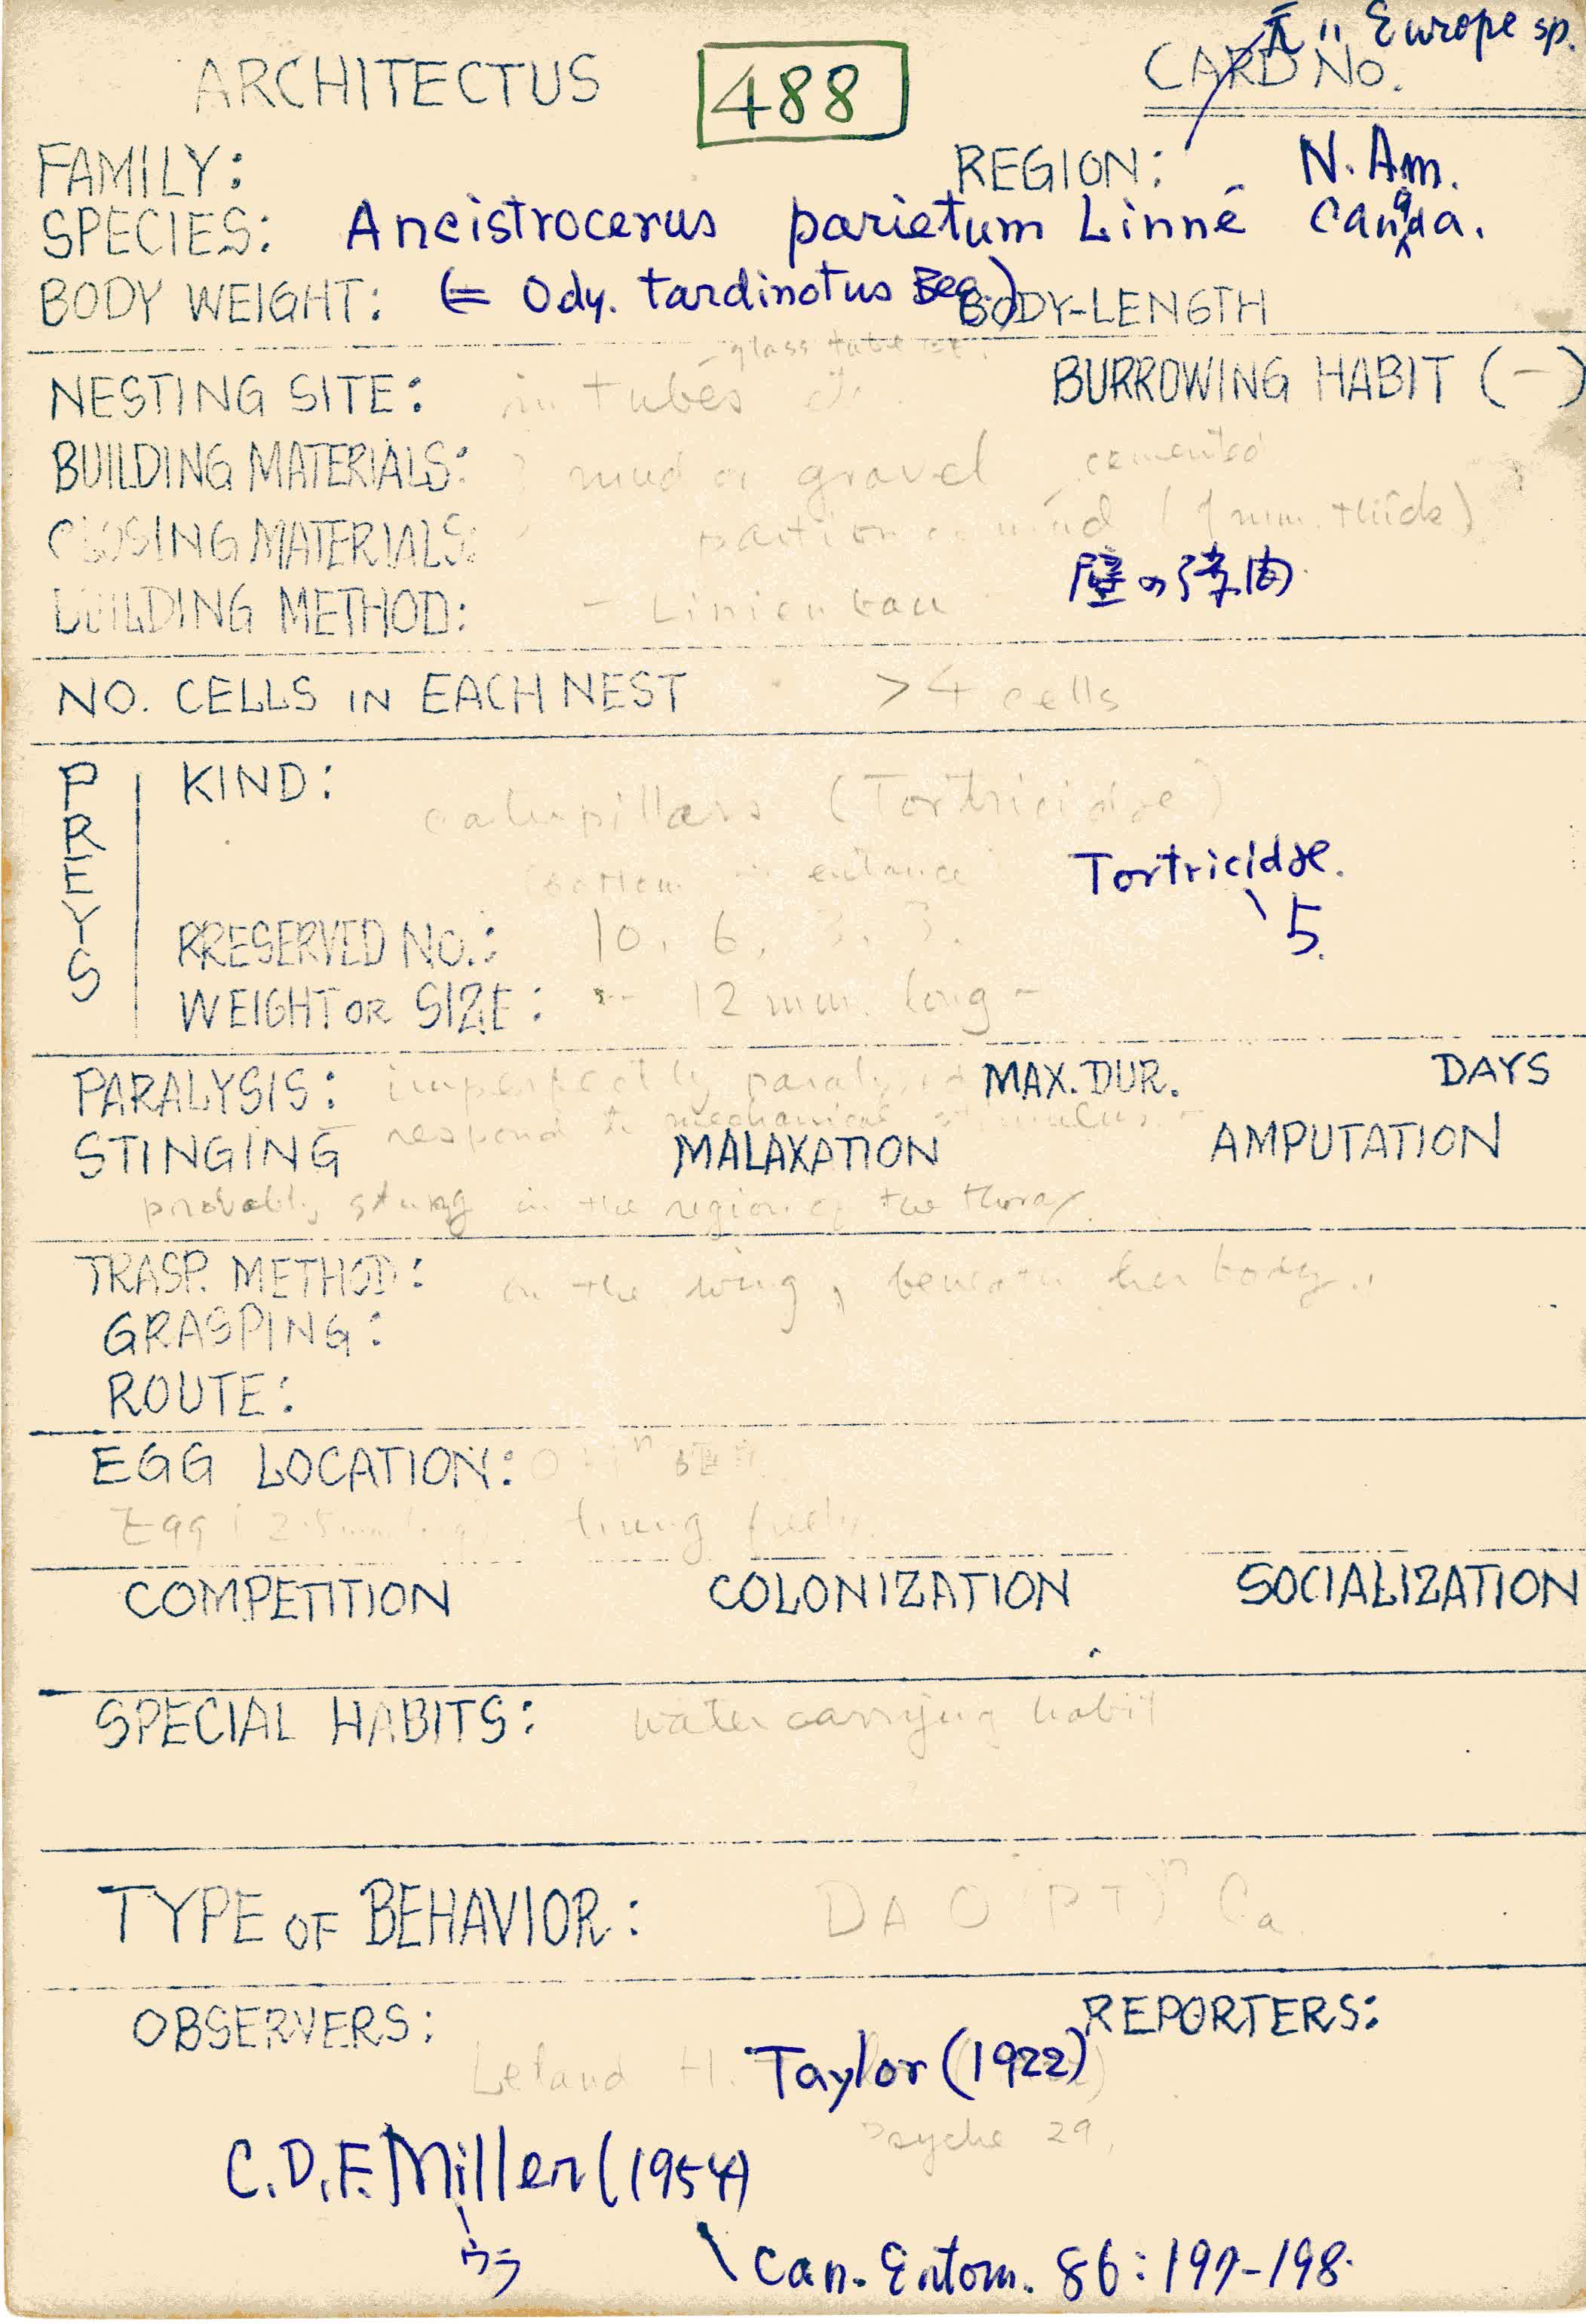 元" Europe sp.
ARCHITECTUS 488 CARD NO.
FAMILY: REGION: N. Am.
SPECIES: Ancistrocerus parietum Linné Canada.
BODY WEIGHT: (= Ody. tardinotus Beq.) BODY-LENGTH
glass tube
NESTING SITE: in tubes BURROWING HABIT (-)
BUILDING MATERIALS: mud or gravel cemented
CLOSING MATERIALS: mud (1 mm. thick)
壁の
BUILDING METHOD: - Linienbau
NO. CELLS IN EACH NEST >4 cells
PREYS KIND: caterpillars (Tortricidae)
bottom entance Tortricidae.
5.
PRESERVED NO.: 10, 6, 3, 3.
WEIGHT OR SIZE: -- 12 mm. long -
PARALYSIS: imperfectly paralysed MAX. DUR. DAYS
respond to mechanical stimulus -
STINGING MALAXATION AMPUTATION
probably stung in the region of the thorax.
TRASP. METHOD: on the wing, beneath her body.
GRASPING:
ROUTE:
EGG LOCATION:
Egg freely.
COMPETITION COLONIZATION SOCIALIZATION
SPECIAL HABITS: water carrying habit
TYPE OF BEHAVIOR: DAO(PT)ⁿCa
OBSERVERS: REPORTERS:
Leland H. Taylor (1922)
Psyche 29,
C.D.F. Miller (1954)
ウラ
Can. Entom. 86: 197-198.